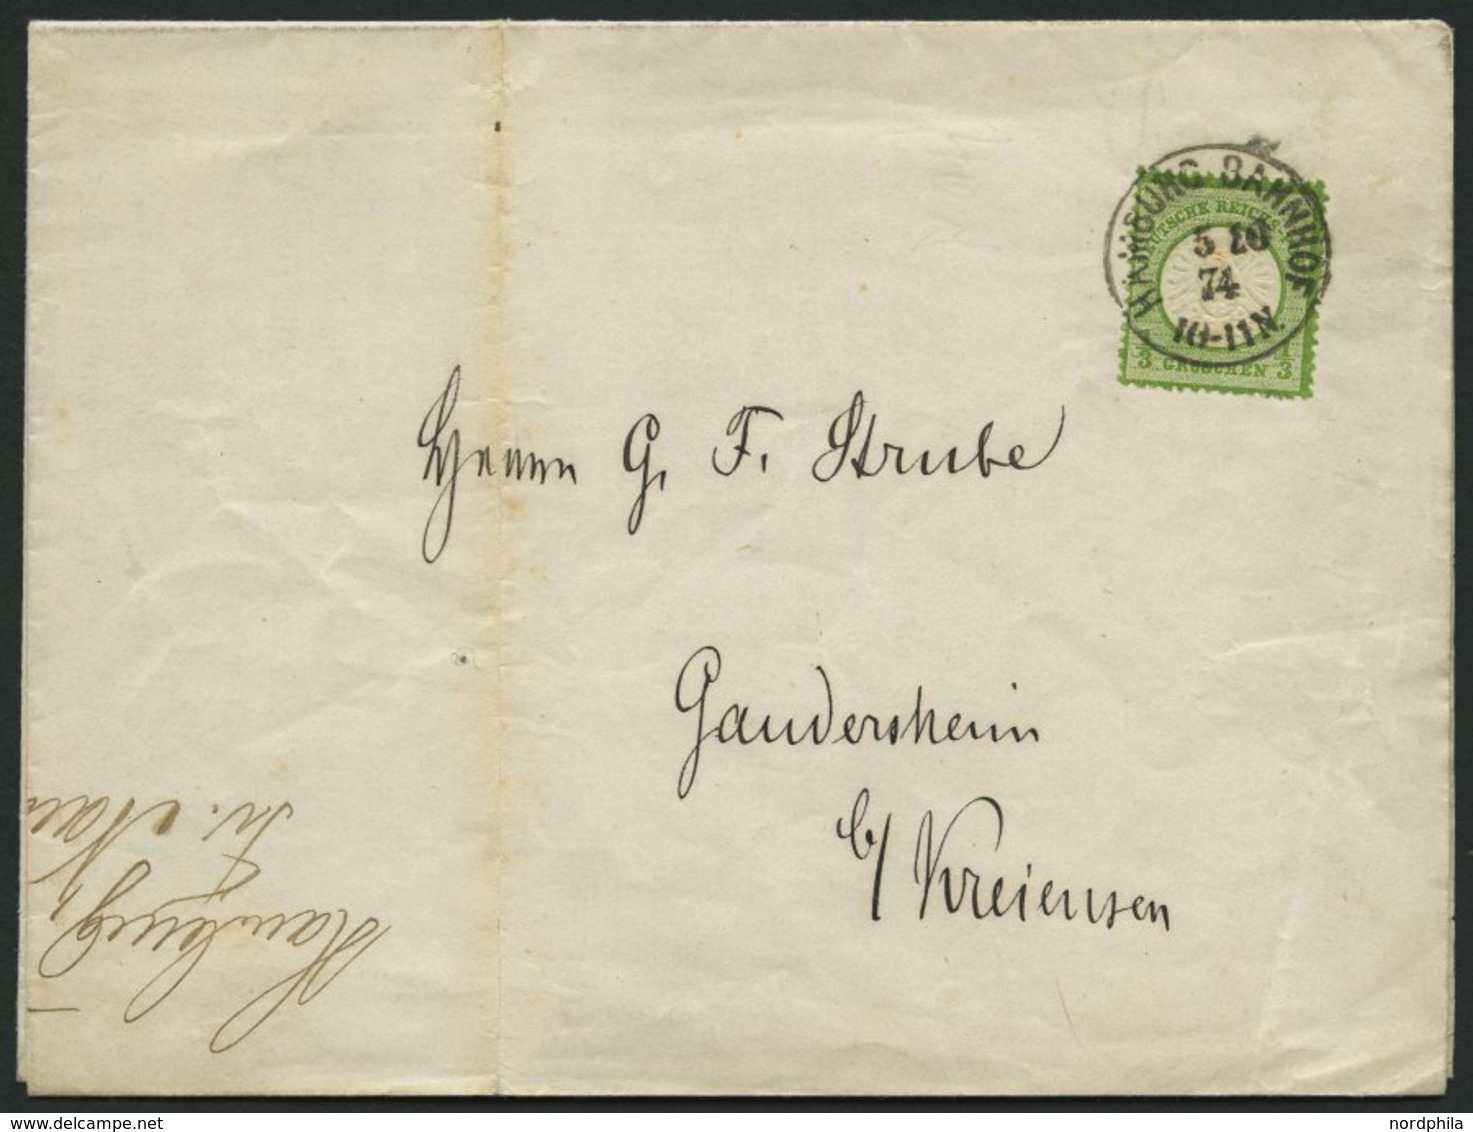 HAMBURG BAHNHOF
5 10
74
10-11N.
DEUTSCHE REICHS-
1/3 GROSCHEN 1/3
Herrn G. F. Strube
Gandersheim
b/ Kreiensen
Hamburg,
delcampe.net
nordphila